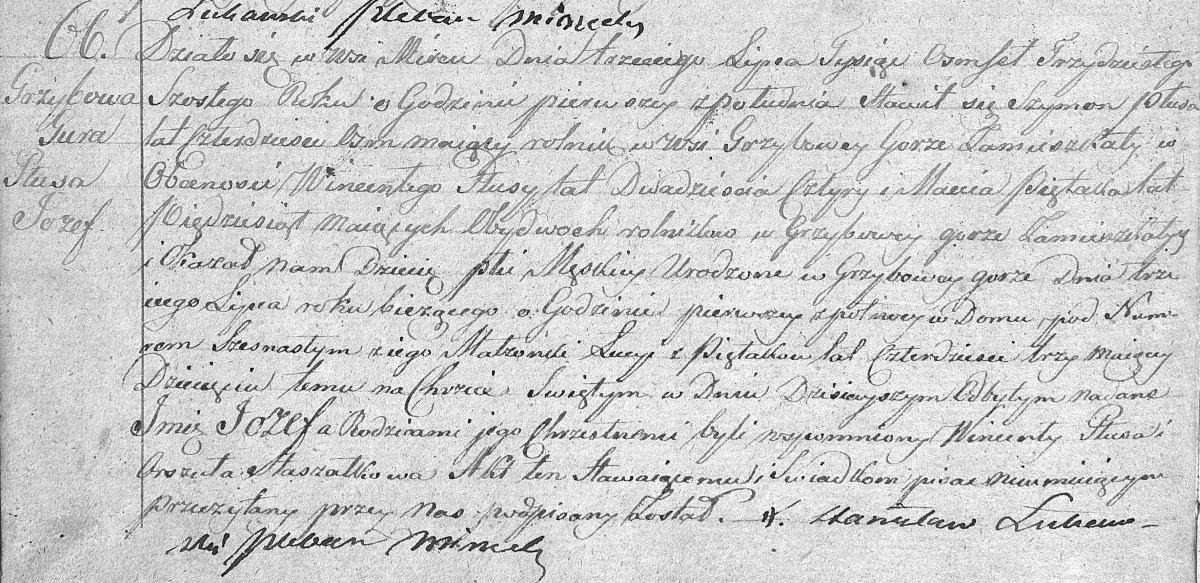 Lukawski Pleban Mirecki
66.
Grzybowa
Gura
Płusa
Jozef.
Działo się w wsi Mircu Dnia trzeciego Lipca Tysiąc Osmset Trzydziestego
Szostego Roku o Godzinie pierwszey z południa Stawił się Szymon Płusa
lat Czterdziesci Osm maiący rolnik w wsi Grzybowey Gorze Zamieszkały w
Obecnosci Wincentego Płusy lat Dwadziescia Cztyry i Macia Piętaka lat
Pięcdziesiąt Maiących Obydwoch rolnikow w Grzybowey gorze Zamieszkałych
i Okazał nam Dziecię płci Męskiey Urodzone w Grzybowey gorze Dnia trze
ciego Lipca roku bieżącego o Godzinie pierwszey z połnocy w Domu pod Num-
rem Szesnastym z iego Małzonki Lucyi z Piętakow lat Czterdziesci trzy maiący
Dziecięciu temu na Chrzcie Swiętym w Dniu Dzisieyszym Odbytym nadane
Imię Jozef a Rodzicami jego Chrzestnemi byli wspomniony Wincenty Płusa i
Orszula Staszałkowa Akt ten Stawaiącemu i Swiadkom pisac nieumieiącym
Przeczytany przez Nas podpisany Został. X. Stanisław Lukaw-
ski Pleban Mirecki